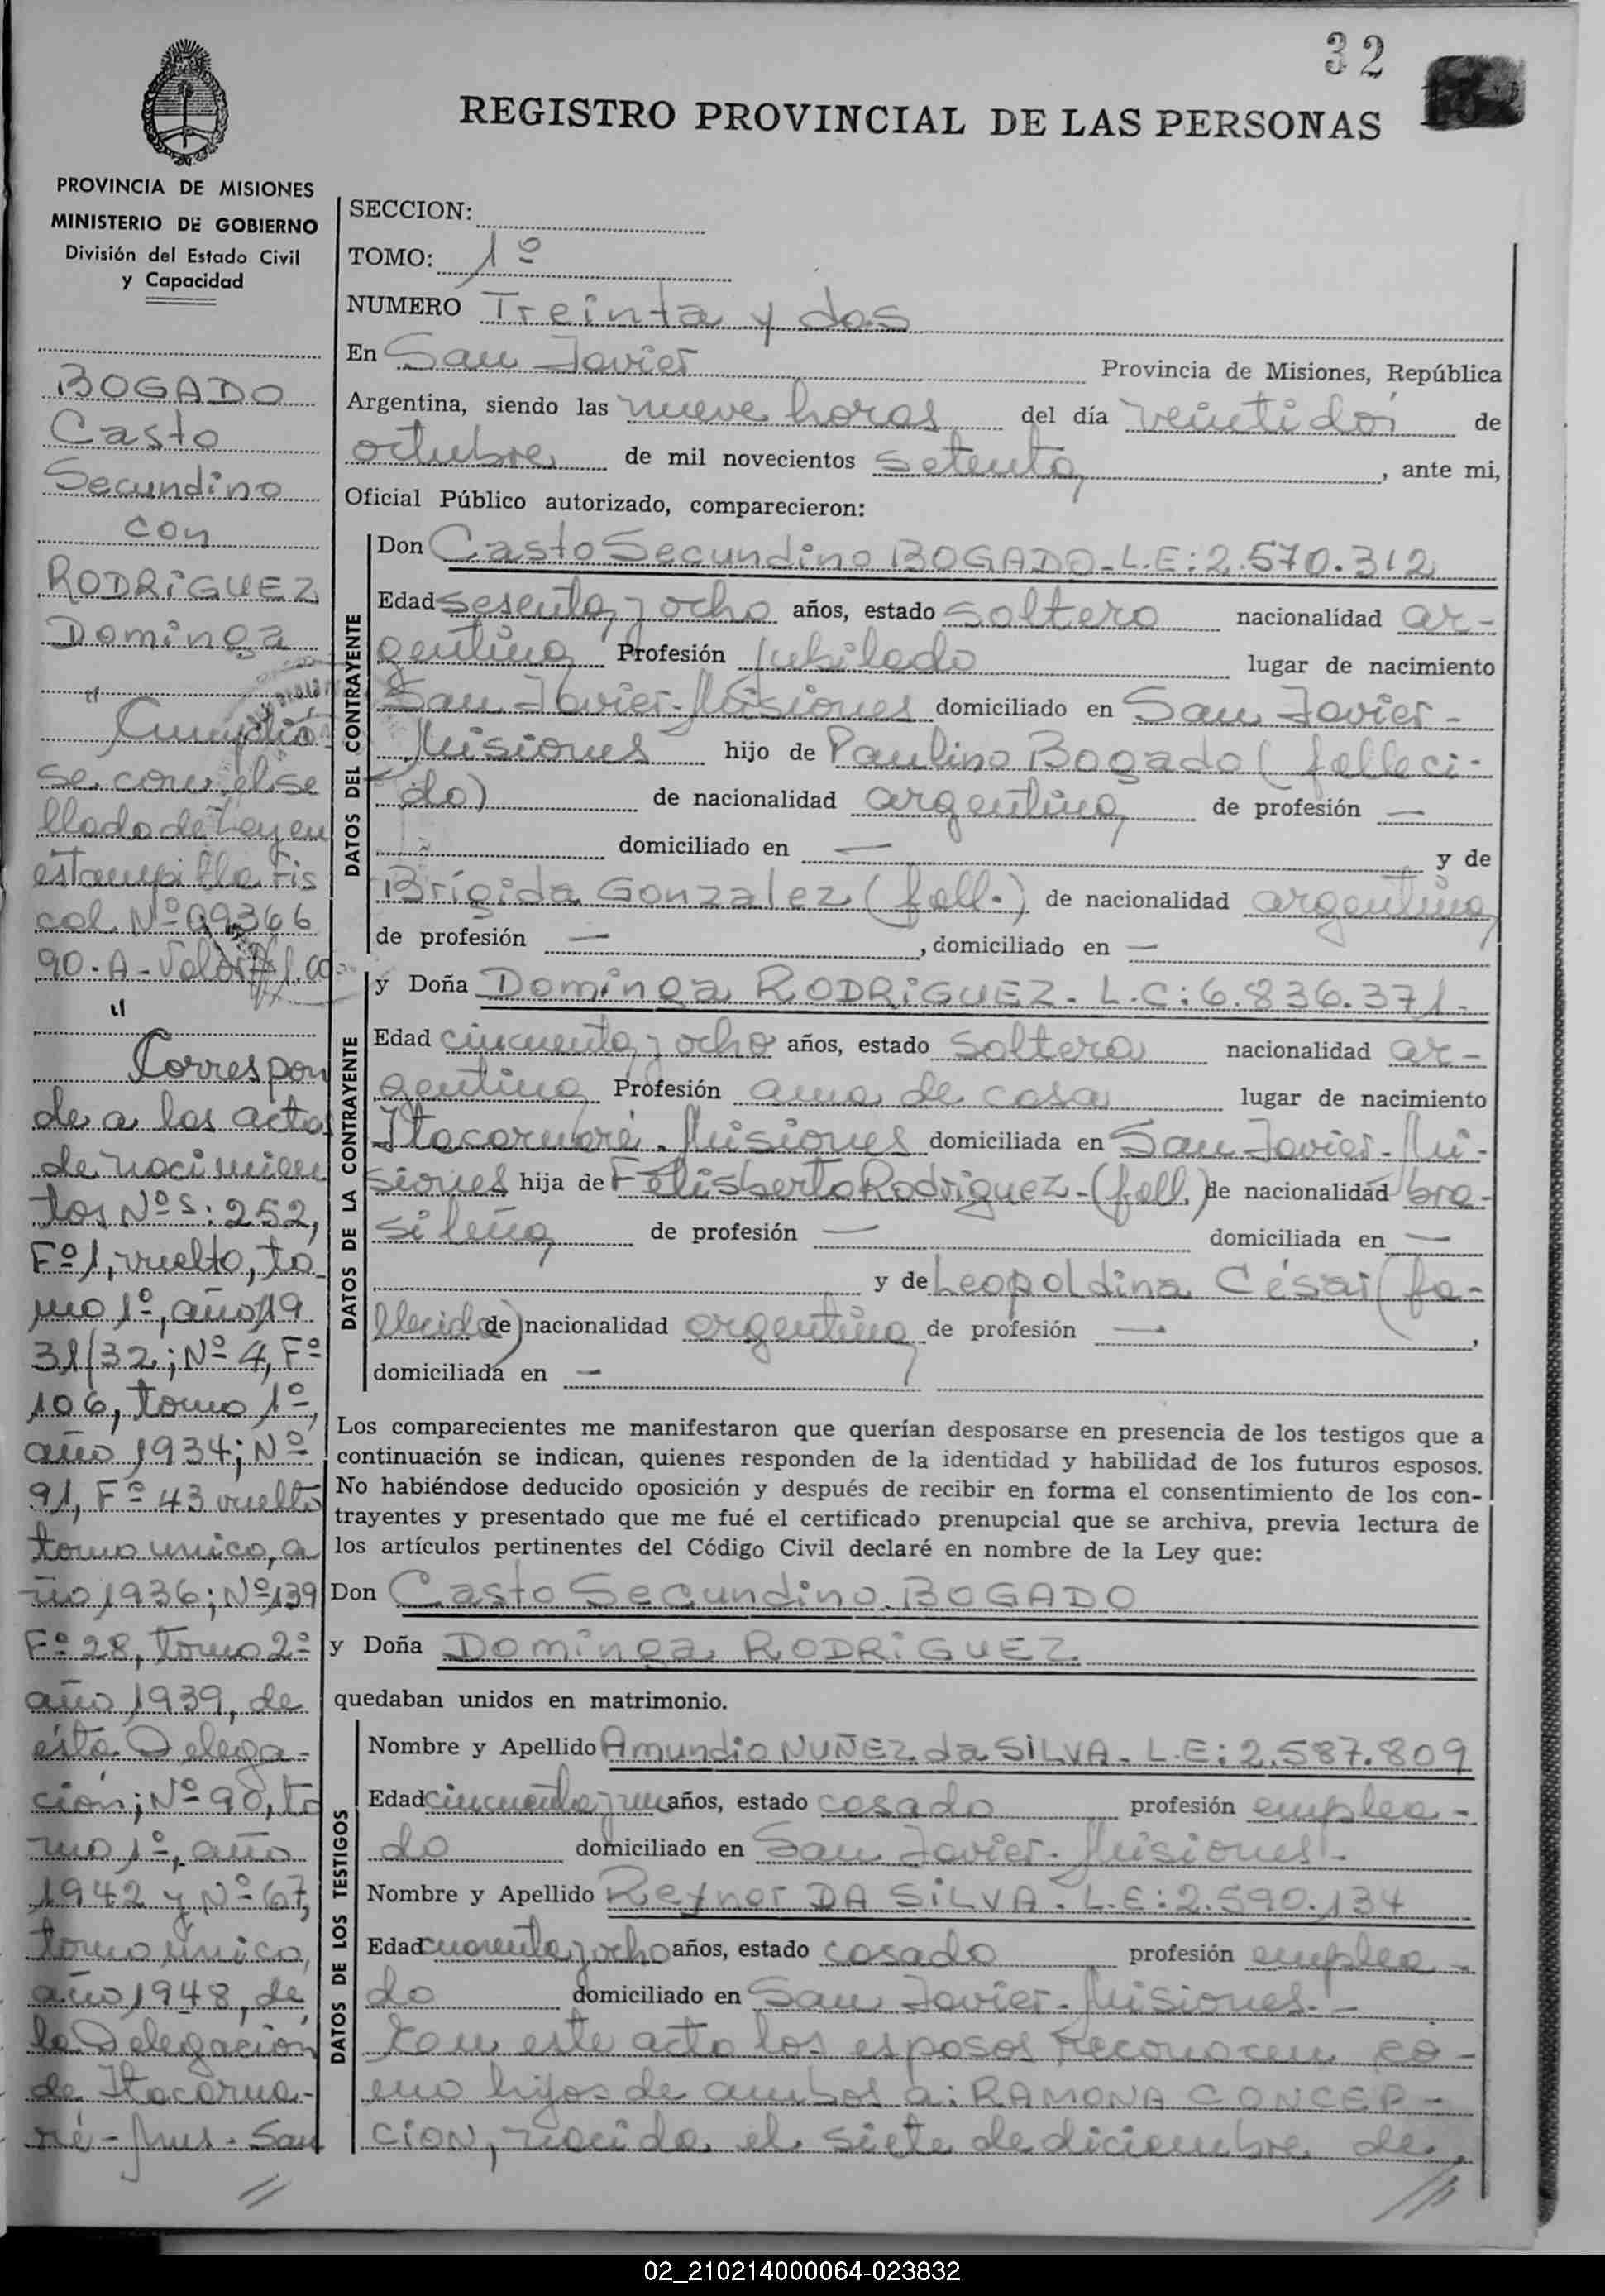 32
REGISTRO PROVINCIAL DE LAS PERSONAS
PROVINCIA DE MISIONES
MINISTERIO DE GOBIERNO
División del Estado Civil
y Capacidad
BOGADO
Casto
Secundino
con
RODRIGUEZ
Dominga
"Cumplió
se con el se
llado de Ley en
estampilla Fis
col Nº 09366
90-A-Valor $1.00
"
Correspon
de a las actas
de nacimien
tos Nºs: 252,
Fº 1, vuelto, to
mo 1º, año 19
31/32; Nº 4, Fº
106, tomo 1º,
año 1934; Nº
91, Fº 43 vuelto
tomo unico, a
ño 1936; Nº 139
Fº 28, tomo 2º
año 1939, de
ésta Delega-
ción; Nº 90, to
mo 1º, año
1942 y Nº 67,
tomo único,
año 1948, de
la Delegación
de Itacarua-
ré - Mnes. San
//
SECCION:
TOMO: 1º
NUMERO Treinta y dos
En San Javier Provincia de Misiones, República
Argentina, siendo las nueve horas del día veintidós de
octubre de mil novecientos setenta, ante mi,
Oficial Público autorizado, comparecieron:
DATOS DEL CONTRAYENTE
Don Casto Secundino BOGADO-L.E:2.570.312
Edad sesenta y ocho años, estado soltero nacionalidad ar-
gentina Profesión jubilado lugar de nacimiento
San Javier-Misiones domiciliado en San Javier-
Misiones hijo de Paulino Bogado (falleci-
do) de nacionalidad argentina de profesión —
domiciliado en — y de
Brígida Gonzalez (fall.) de nacionalidad argentina
de profesión —, domiciliado en —
DATOS DE LA CONTRAYENTE
y Doña Dominga RODRIGUEZ. L.C:6.836.371-
Edad cincuenta y ocho años, estado soltera nacionalidad ar-
gentina Profesión ama de casa lugar de nacimiento
Itacaruaré. Misiones domiciliada en San Javier-Mi-
siones hija de Felisberto Rodriguez-(fall.) de nacionalidad bra-
sileña de profesión — domiciliada en —
y de Leopoldina César (fa-
llecida) de nacionalidad argentina de profesión —,
domiciliada en —
Los comparecientes me manifestaron que querían desposarse en presencia de los testigos que a
continuación se indican, quienes responden de la identidad y habilidad de los futuros esposos.
No habiéndose deducido oposición y después de recibir en forma el consentimiento de los con-
trayentes y presentado que me fué el certificado prenupcial que se archiva, previa lectura de
los artículos pertinentes del Código Civil declaré en nombre de la Ley que:
Don Casto Secundino BOGADO
y Doña Dominga RODRIGUEZ
quedaban unidos en matrimonio.
DATOS DE LOS TESTIGOS
Nombre y Apellido Amundio NUÑEZ da SILVA. L.E:2.587.809
Edad cincuenta y un años, estado casado profesión emplea-
do domiciliado en San Javier-Misiones-
Nombre y Apellido Reynor DA SILVA. L.E:2.590.134
Edad cuarenta y ocho años, estado casado profesión emplea-
do domiciliado en San Javier-Misiones.-
En este acto los esposos reconocen co-
mo hijos de ambos a: RAMONA CONCEP-
CION, nacida el siete de diciembre de
//
02_210214000064-023832